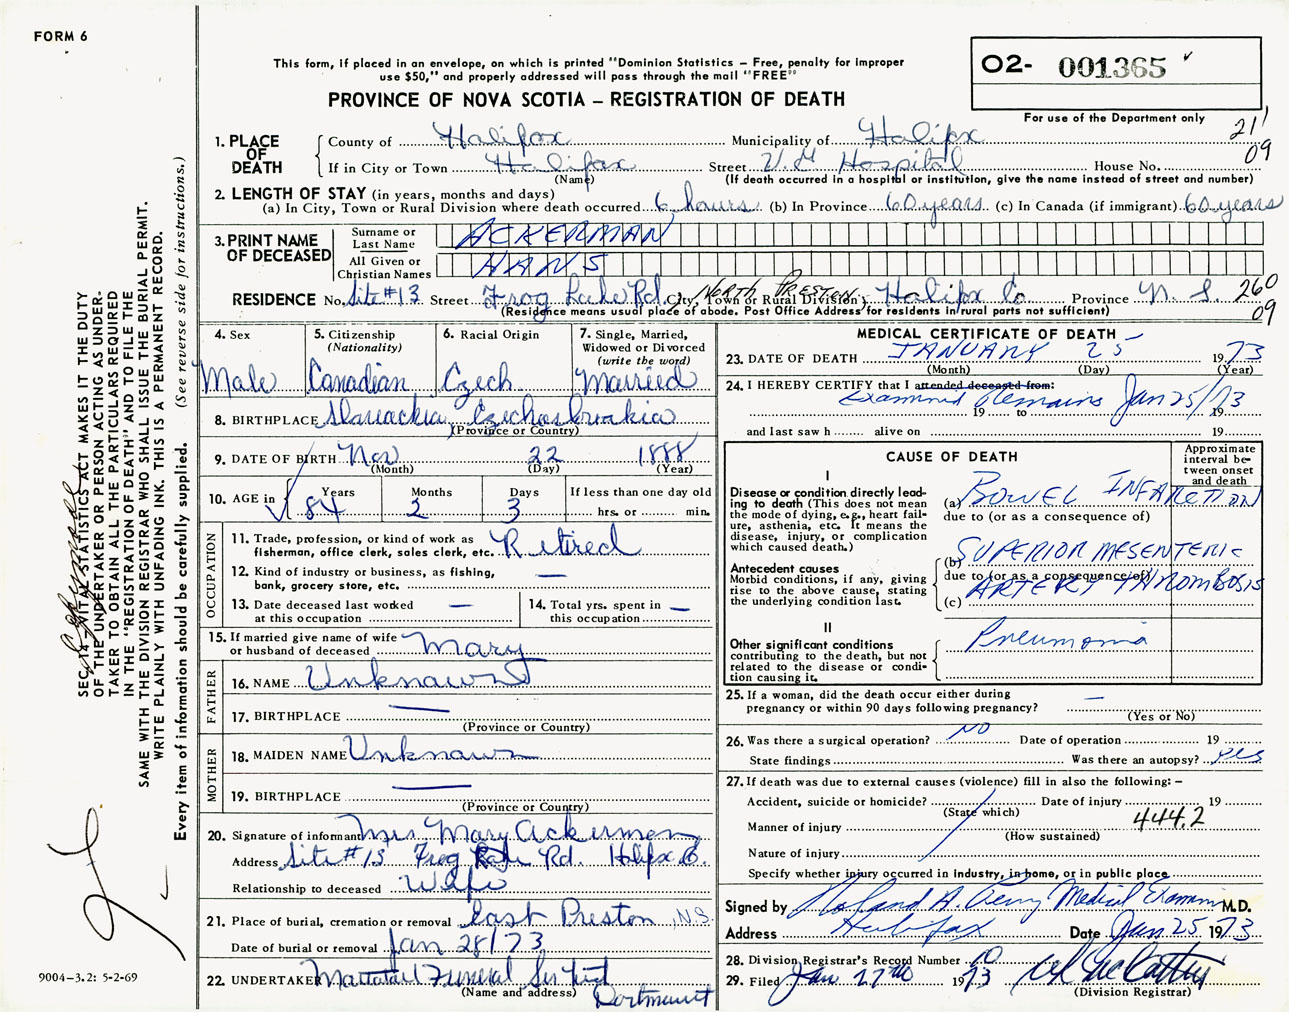 FORM 6
This form, if placed in an envelope, on which is printed "Dominion Statistics – Free, penalty for improper
use $50," and properly addressed will pass through the mail "FREE"
PROVINCE OF NOVA SCOTIA – REGISTRATION OF DEATH
02- 001365
For use of the Department only
211
09
1. PLACE OF DEATH
County of Halifax Municipality of Halifax
If in City or Town Halifax Street V.G Hospital House No.
(Name) (If death occurred in a hospital or institution, give the name instead of street and number)
2. LENGTH OF STAY (in years, months and days)
(a) In City, Town or Rural Division where death occurred 6 hours (b) In Province 60 years (c) In Canada (if immigrant) 60 years
3. PRINT NAME OF DECEASED
Surname or Last Name ACKERMAN
All Given or Christian Names HANS
RESIDENCE No. Site #13 Street Frog Lake Rd. City, Town or Rural Division NORTH PRESTON, Halifax Co Province N.S. 260
(Residence means usual place of abode. Post Office Address for residents in rural parts not sufficient) 09
4. Sex Male
5. Citizenship (Nationality) Canadian
6. Racial Origin Czech
7. Single, Married, Widowed or Divorced (write the word) Married
8. BIRTHPLACE Czechoslovakia
(Province or Country)
9. DATE OF BIRTH Nov 22 1888
(Month) (Day) (Year)
10. AGE in Years 84 Months 2 Days 3 If less than one day old
hrs. or min.
OCCUPATION
11. Trade, profession, or kind of work as fisherman, office clerk, sales clerk, etc. Retired
12. Kind of industry or business, as fishing, bank, grocery store, etc. —
13. Date deceased last worked at this occupation —
14. Total yrs. spent in this occupation —
15. If married give name of wife or husband of deceased Mary
FATHER
16. NAME Unknown
17. BIRTHPLACE —
(Province or Country)
MOTHER
18. MAIDEN NAME Unknown
19. BIRTHPLACE —
(Province or Country)
20. Signature of informant Mrs Mary Ackerman
Address Site #13 Frog Lake Rd. Halifax Co.
Relationship to deceased Wife
21. Place of burial, cremation or removal East Preston, N.S.
Date of burial or removal Jan 28/73
22. UNDERTAKER Funeral
(Name and address) Dartmouth
MEDICAL CERTIFICATE OF DEATH
23. DATE OF DEATH JANUARY 25 1973
(Month) (Day) (Year)
24. I HEREBY CERTIFY that I attended deceased from:
Examined Remains Jan 25/73
19 to 19
and last saw h alive on 19
CAUSE OF DEATH
Approximate interval between onset and death
I
Disease or condition directly leading to death (This does not mean the mode of dying, e.g., heart failure, asthenia, etc. It means the disease, injury, or complication which caused death.)
(a) BOWEL INFARCTION
due to (or as a consequence of)
Antecedent causes
Morbid conditions, if any, giving rise to the above cause, stating the underlying condition last.
(b) SUPERIOR MESENTERIC
due to (or as a consequence of)
(c) ARTERY THROMBOSIS
II
Other significant conditions
contributing to the death, but not related to the disease or condition causing it.
Pneumonia
25. If a woman, did the death occur either during pregnancy or within 90 days following pregnancy? —
(Yes or No)
26. Was there a surgical operation? NO Date of operation 19
State findings Was there an autopsy? yes
27. If death was due to external causes (violence) fill in also the following: –
Accident, suicide or homicide? Date of injury 19
(State which)
Manner of injury 444.2
(How sustained)
Nature of injury
Specify whether injury occurred in industry, in home, or in public place
Signed by Roland A. Perry Medical Examiner M.D.
Address Halifax Date Jan. 25 1973
28. Division Registrar's Record Number
29. Filed Jan 27th 1973
(Division Registrar)
SEC. 14 VITAL STATISTICS ACT MAKES IT THE DUTY
OF THE UNDERTAKER OR PERSON ACTING AS UNDER-
TAKER TO OBTAIN ALL THE PARTICULARS REQUIRED
IN THE "REGISTRATION OF DEATH" AND TO FILE THE
SAME WITH THE DIVISION REGISTRAR WHO SHALL ISSUE THE BURIAL PERMIT.
WRITE PLAINLY WITH UNFADING INK. THIS IS A PERMANENT RECORD.
Every item of information should be carefully supplied. (See reverse side for instructions.)
9004-3.2: 5-2-69